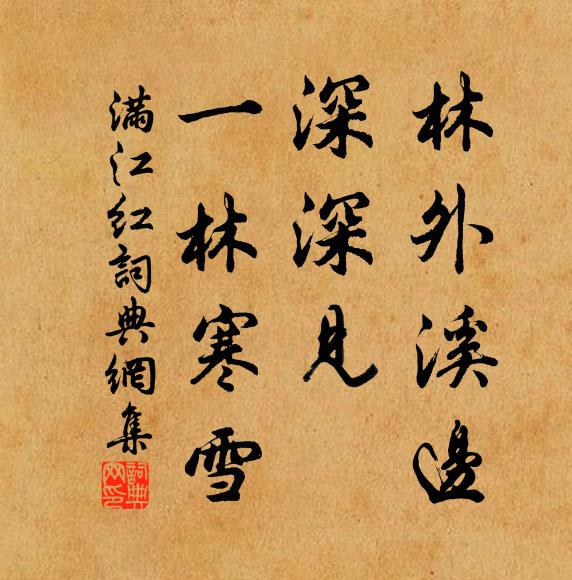 林外溪邊
深深見
一林寒雪
滿江紅詞典網集
詞典網印